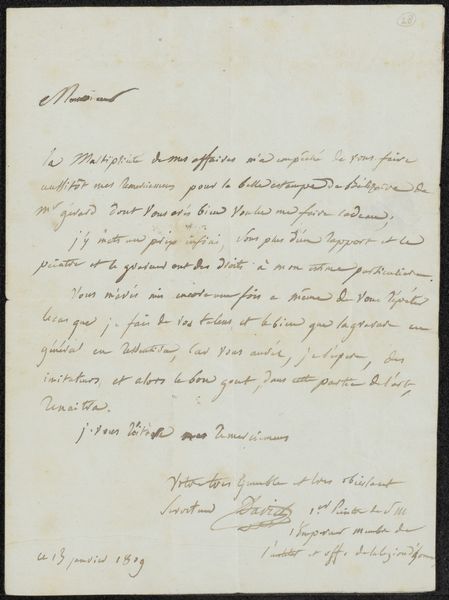 28
Monsieur
la Multiplicité de mes affaires m'a empêché de vous faire
aussitôt mes remerciemens pour la belle estampe de Bélisaire de
Mr gérard dont vous avés bien voulu me faire cadeau,
j'y mets un prix infini, sous plus d'un rapport et le
peintre et le graveur ont des droits à mon estime particulière.
Vous m'avés mis encore une fois a même de vous répéter
le cas que je fais de vos talens et le bien que la gravure en
général en ressentira, car vous aurés, je l'espère, des
imitateurs, et alors le bon gout, dans cette partie de l'art,
renaitra.
je vous réitère mes remerciemens
Votre très humble et très obéissant
Serviteur David 1er Peintre de S M
l'Empereur membre de
l'institut et offr. de la légion d'honr
ce 13 janvier 1809